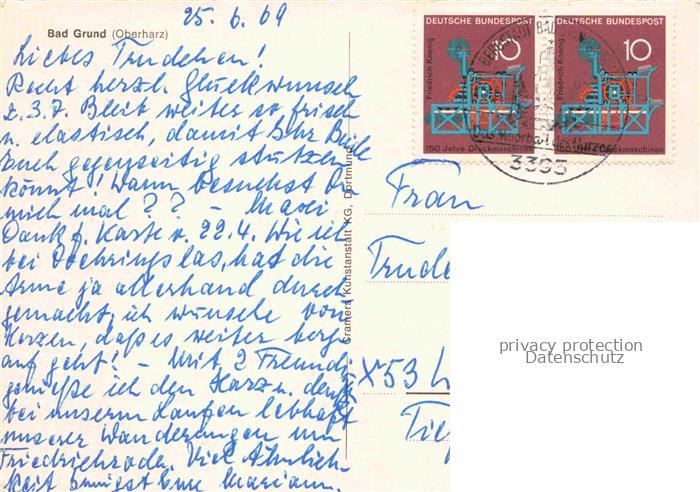 25. 6. 69
Bad Grund (Oberharz)
Liebes Trudchen!
Recht herzl. Glückwunsch
z. 3. 7. Bleib weiter so frisch
u. elastisch, damit Ihr Beide
Euch gegenseitig stützen
könnt! Wann besuchst Du
mich mal ?? –
Dank f. Karte v. 22.4. Wie ich
bei las, hat die
Arme ja allerhand durch
gemacht, ich wünsche von
Herzen, daß es weiter berg
auf geht! – Mit 2 Freundi
genieße ich den Harz u. denke
bei unserm Laufen lebhaft
unserer Wanderungen um
Friedrichroda. Viel Ähnlich
keit Eure Mariann.
Cramers Kunstanstalt KG, Dortmund
DEUTSCHE BUNDESPOST
10
Friedrich Koenig
150 Jahre Druckmaschinen
DEUTSCHE BUNDESPOST
10
Friedrich Koenig
150 Jahre Druckmaschinen
3395
Frau
Trude
X 53
privacy protection
Datenschutz